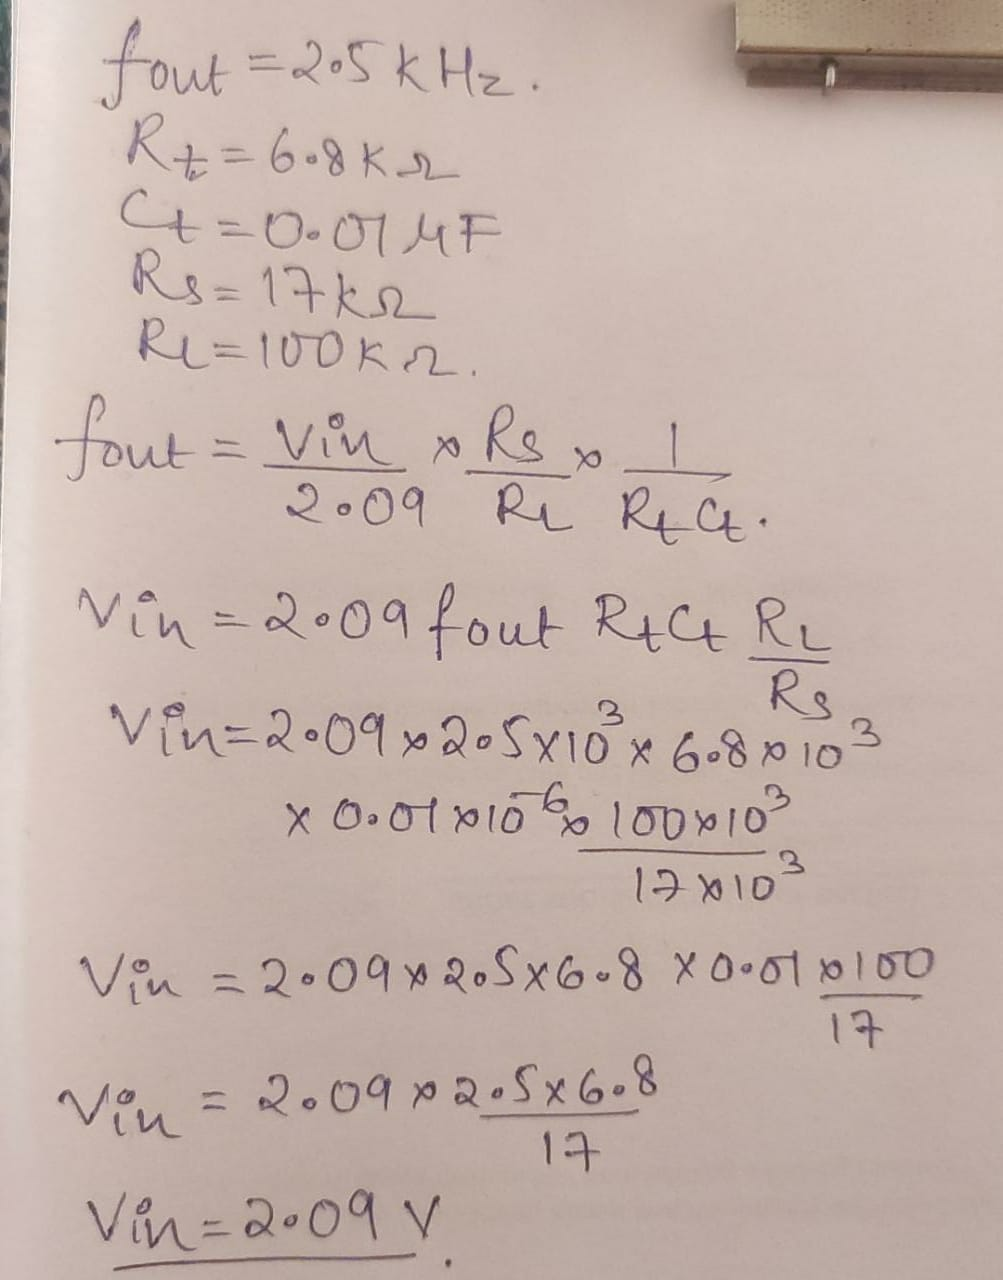 fout = 2.5 kHz.
Rt = 6.8 KΩ
Ct = 0.01 μF
Rs = 17 kΩ
RL = 100 KΩ.
fout = Vin/2.09 × Rs/RL × 1/RtCt.
Vin = 2.09 fout RtCt RL/Rs
Vin = 2.09 × 2.5 × 10³ × 6.8 × 10³
× 0.01 × 10⁻⁶ × 100 × 10³/17 × 10³
Vin = 2.09 × 2.5 × 6.8 × 0.01 × 100/17
Vin = 2.09 × 2.5 × 6.8/17
Vin = 2.09 V.